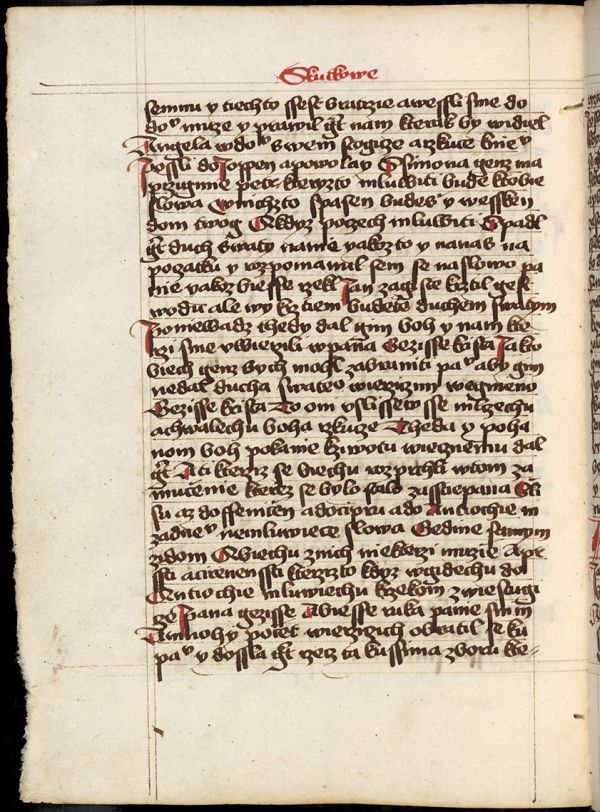 Skutkowe
semnu y tiechto ssest bratrzie a wessli sme do
domu muze y prawil gest nam kterak by widiel
Angela w domu swem stogize a rzkuce k niemu
possli do Joppen a powolay Ssimona genz ma
przigmie petr kteryzto mluwiti bude k tobie
slowa w nichzto spasen budes y wessken
dom twog A kdyz poczech mluwiti Spadl
gest duch swaty na nie yakozto y na nas na
poczatku y rozpomanul sem se na slowo pa
nie yakoz biesse rzekl Jan zagiste krztil gest
wodu ale wy krztieni budete duchem swatym
Poniewadz thedy dal gim boh y nam kte
rzi sme vwierzili w pana Gezisse krista Ja kto
biech genz bych mohl zabraniti panu aby gim
nedal ducha swateho wierzicim w gmeno
Gezisse krista To oni vslissewsse mlczechu
a chwalechu boha rzkuce Theda y poha
nom boh pokanie k ziwotu wiecznemu dal
gest A ti kterziz se biechu rozprchli w tom za
mucenie kterez se bylo stalo za sstiepana Gli
su az do ffenicen a do cipru a do Antiochie ni
zadnemu nemluwiece slowa Gedine samym
zidom A biechu z nich niekterzi muzie Cipr
ssti a cirenenssti kterzizto kdyz wgidechu do
Antiochie mluwiechu k rzekom zwiestugi
ce pana gezisse A biesse ruka panie s nimi
A mnohy poczet wierzicich obratil se ku
panu y dossla gest rzecz ta k ussima zboru kte-